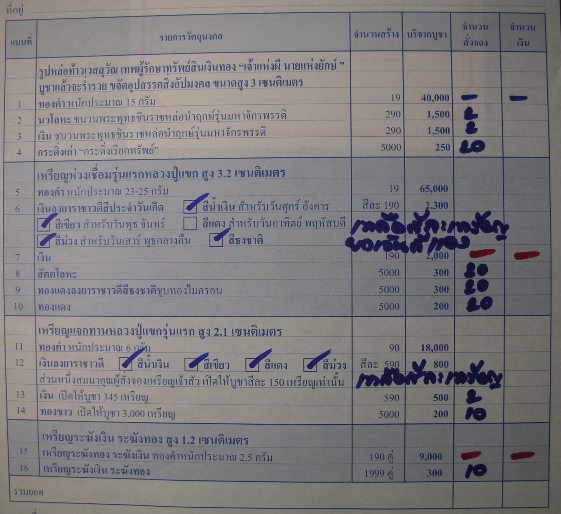 ที่อยู่
แบบที่ รายการวัตถุมงคล จำนวนสร้าง บริจาคบูชา จำนวนสั่งจอง จำนวนเงิน
รูปหล่อท้าวเวสสุวัณ เทพผู้รักษาทรัพย์สินเงินทอง "เจ้าแห่งผี นายแห่งยักษ์"
บูชาแล้วจะร่ำรวย ขจัดอุปสรรคสิ่งอัปมงคล ขนาดสูง 3 เซนติเมตร
1 ทองคำ หนักประมาณ 15 กรัม 19 40,000 - -
2 นวโลหะ ชนวนพระพุทธชินราชหล่อนำฤกษ์รุ่นมหาจักรพรรดิ 290 1,500 2
3 เงิน ชนวนพระพุทธชินราชหล่อนำฤกษ์รุ่นมหาจักรพรรดิ 290 1,500 2
4 กระดิ่งเก่า "กระดิ่งเรียกทรัพย์" 5000 250 20
เหรียญห่วงเชื่อมรุ่นแรกหลวงปู่แขก สูง 3.2 เซนติเมตร
5 ทองคำ หนักประมาณ 23-25 กรัม 19 65,000
6 เงินลงยาราชาวดีสีประจำวันเกิด สีน้ำเงิน สำหรับวันศุกร์ อังคาร สีละ 190 2,300
สีเขียว สำหรับวันพุธ จันทร์ สีแดง สำหรับวันอาทิตย์ พฤหัสบดี
สีม่วง สำหรับวันเสาร์ พุธกลางคืน สีธงชาติ
7 เงิน 190 2,000 - -
8 สัตตโลหะ 5000 300 20
9 ทองแดงลงยาราชาวดีสีธงชาติชุบทองไมครอน 5000 300 20
10 ทองแดง 5000 200 20
เหรียญแจกทานหลวงปู่แขกรุ่นแรก สูง 2.1 เซนติเมตร
11 ทองคำ หนักประมาณ 6 กรัม 90 18,000
12 เงินลงยาราชาวดี สีน้ำเงิน สีเขียว สีแดง สีม่วง สีละ 590 800
ส่วนหนึ่งสมนาคุณผู้สั่งจองเหรียญเจ้าสัว เปิดให้บูชาสีละ 150 เหรียญเท่านั้น
13 เงิน เปิดให้บูชา 345 เหรียญ 590 500 2
14 ทองขาว เปิดให้บูชา 3,000 เหรียญ 5000 200 10
เหรียญระฆังเงิน ระฆังทอง สูง 1.2 เซนติเมตร
15 เหรียญระฆังทอง ระฆังเงิน ทองคำหนักประมาณ 2.5 กรัม 190 คู่ 9,000 - -
16 เหรียญระฆังเงิน ระฆังทอง 1999 คู่ 300 10
รวมยอด